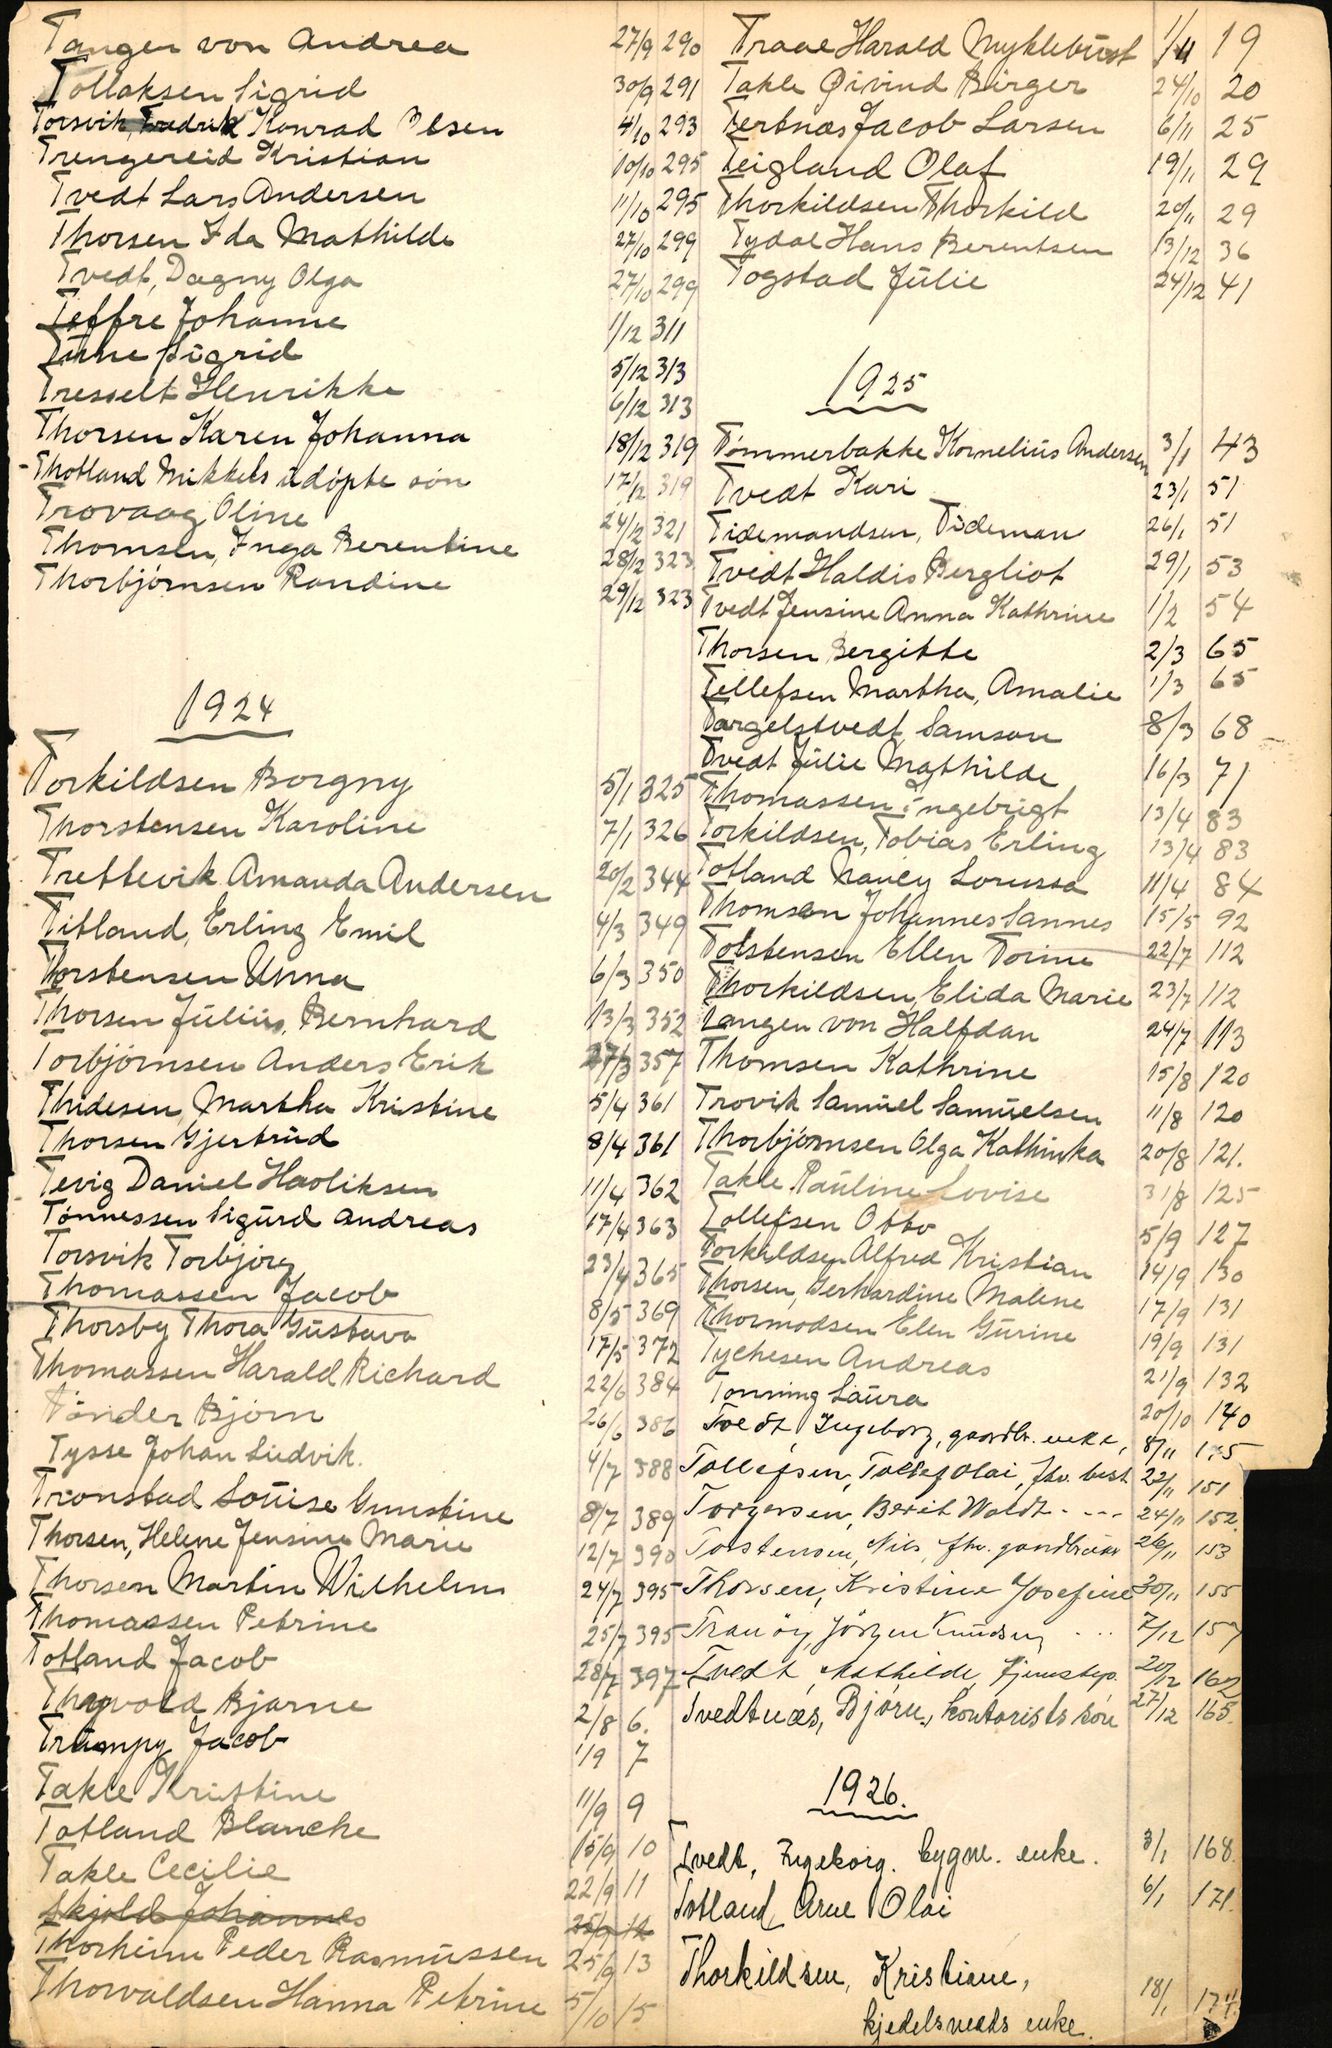 Tangen von Andrea 27/9 290
Tollaksen Sigrid 30/9 291
Torsvik, Fredrik Konrad Olsen 4/10 293
Trengereid Kristian 10/10 295
Tvedt Lars Andersen 11/10 295
Thorsen Ida Mathilde 27/10 299
Tvedt, Dagny Olga 27/10 299
Teffre Johanne 1/12 311
Tune Sigrid 5/12 313
Tresselt Henrikke 6/12 313
Thorsen Karen Johanna 18/12 319
Thotland Mikkels udöpte sön 17/12 319
Trovaag Oline 24/12 321
Thomsen, Inga Berentine 28/12 323
Thorbjørnsen Randine 29/12 323
1924
Torkildsen Borgny 5/1 325
Thorstensen Karoline 7/1 326
Trettevik Amanda Andersen 20/2 344
Titland, Erling Emil 4/3 349
Torstensen Unna 6/3 350
Thorsen Julius Bernhard 13/3 352
Torbjørnsen Anders Erik 27/3 357
Thidesen, Martha Kristine 5/4 361
Thorsen Gjertrud 8/4 361
Tevig Daniel Havliksen 11/4 362
Tønnessen Sigurd Andreas 17/4 363
Torsvik Torbjörg 23/4 365
Thomassen Jacob 8/5 369
Thorsby Thora Gustava 17/5 372
Thomassen Harald Richard 22/6 384
Tönder Bjørn 26/6 386
Tysse Johan Ludvik. 4/7 388
Tronstad Louise Ernstine 8/7 389
Thorsen, Helene Jensine Marie 12/7 390
Thorsen Martin Wilhelm 24/7 395
Thomassen Petrine 25/7 395
Totland Jacob 28/7 397
Thayvold Bjarne 2/8 6.
Trümpy Jacob 1/9 7
Takle Kristine 11/9 9
Totland Blancke 15/9 10
Takle Cecilie 22/9 11
Skjold Johannes 25/9 12
Thorheim Peder Rasmussen 25/9 13
Thorvaldsen Hanna Petrine 5/10 15
Traae Harald Myklebust 1/11 19
Takle Øivind Birger 24/10 20
Tertnæs Jacob Larsen 6/11 25
Teigland Olaf 19/11 29
Thorkildsen Thorkild 20/11 29
Tydal Hans Berentsen 13/12 36
Togstad Julie 24/12 41
1925
Tømmerbakke Kornelius Andersen 3/1 43
Tvedt Kari 23/1 51
Tidemandsen, Tideman 26/1 51
Tvedt Haldis Bergliot 29/1 53
Tvedt Jensine Anna Kathrine 1/2 54
Thorsen Bergitte 2/3 65
Tellefsen Martha, Amalie 1/3 65
Targelstvedt, Samson 8/3 68
Tvedt Julie Mathilde 16/3 71
Thomassen Ingebrigt 13/4 83
Torkildsen, Tobias Erling 13/4 83
Totland Nancy Lorussa 11/4 84
Thomsen Johannes Sannes 15/5 92
Torstensen Ellen Torine 22/7 112
Thorkildsen, Elida Marie 23/7 112
Tangen von Halfdan 24/7 113
Thomsen Kathrine 15/8 120
Trovik Samuel Samuelsen 11/8 120
Thorbjørnsen Olga Kathinka 20/8 121.
Takle Pauline Lovise 31/8 125
Tollefsen Otto 5/9 127
Torkildsen Alfred Kristian 14/9 130
Thorsen, Gerhardine Malene 17/9 131
Thormodsen Elen Gurine 19/9 131
Tychesen Andreas 21/9 132
Tonning Laura 20/10 140
Tvedt, Ingeborg, gaardbr. enke, 8/11
Tollefsen, Tollef Olai, fhv. best 22/11 151
Torgersen, Berit Waldt - - - - 24/11 152.
Torstensen, Nils, fhv. gaardbruker 26/11 153
Thorsen, Kristine Josefine 30/11 155
Tranöy, Jörgen Knudsen ... 7/12 157
Tvedt, Mathilde, tjenestep. 20/12 162
Tvedtnæs, Björn, kontorists sön 27/12 165.
1926.
Tvedt, Ingeborg. bygm. enke. 3/1 168.
Totland, Arne Olai 6/1 171.
Thorkildsen, Kristiane,
kjedelsmeds enke. 18/1 174.